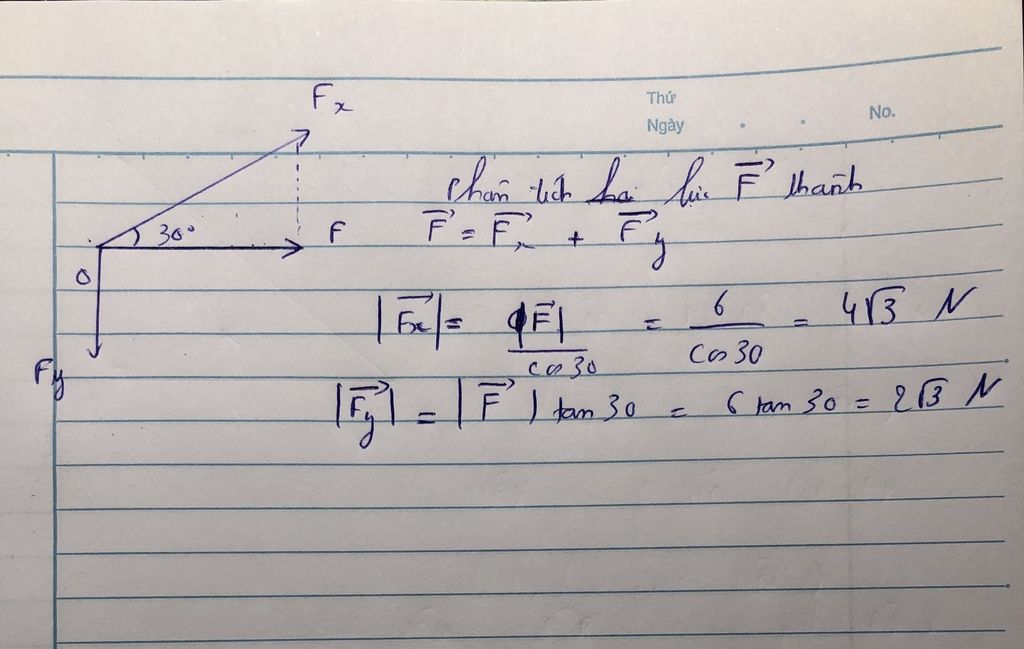 Fx
Thứ
Ngày
No.
30°
F
O
Fy
Phân tích hai lực F⃗ thành
F⃗ = F⃗x + F⃗y
|F⃗x| = |F⃗| / cos 30 = 6 / cos 30 = 4√3 N
|F⃗y| = |F⃗| tan 30 = 6 tan 30 = 2√3 N